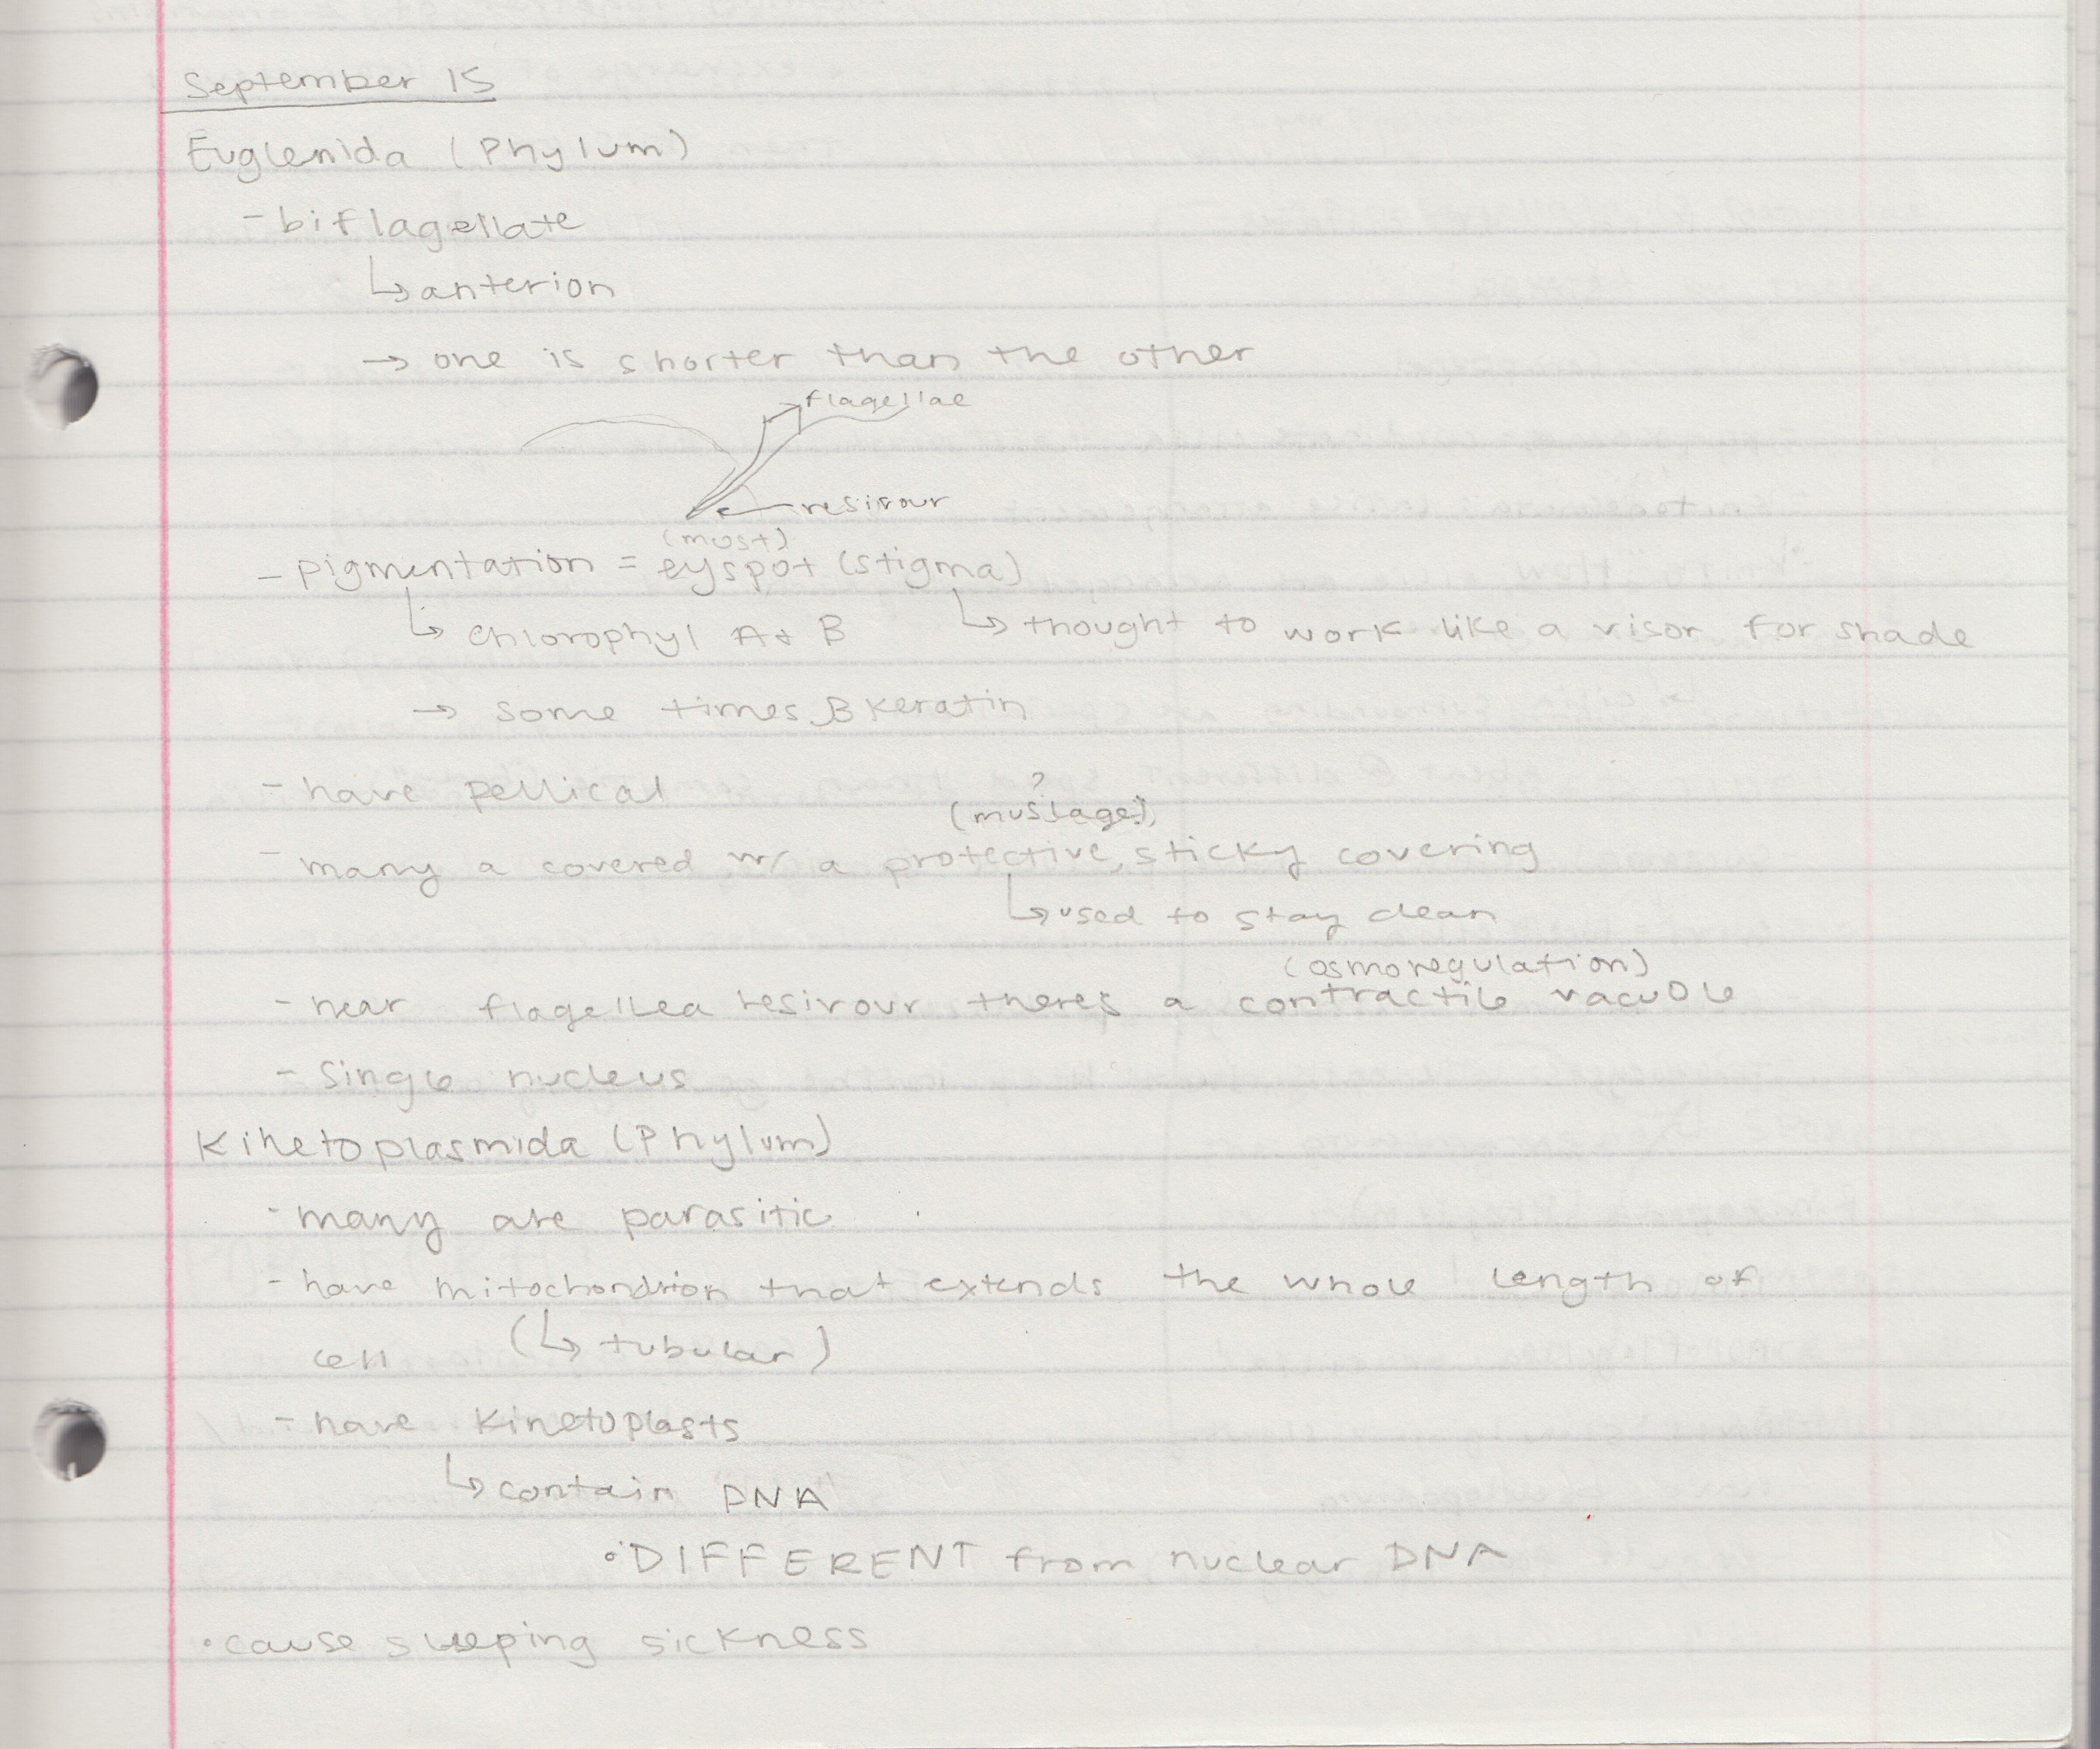 September 15
Euglenida (Phylum)
- biflagellate
↳ anterion
→ one is shorter than the other
flagellae
resivour
(most)
- pigmentation = eyspot (stigma)
↳ chlorophyl A + B ↳ thought to work like a visor for shade
→ some times B keratin
- have pellical
?
(muslage)
- many a covered w/ a protective, sticky covering
↳ used to stay clean
(osmoregulation)
- near flagellea resivour theres a contractile vacuole
- Single nucleus
Kinetoplasmida (Phylum)
- many are parasitic
- have mitochondrion that extends the whole length of
cell (↳ tubular)
- have kinetoplasts
↳ contain DNA
• DIFFERENT from nuclear DNA
• cause sleeping sickness